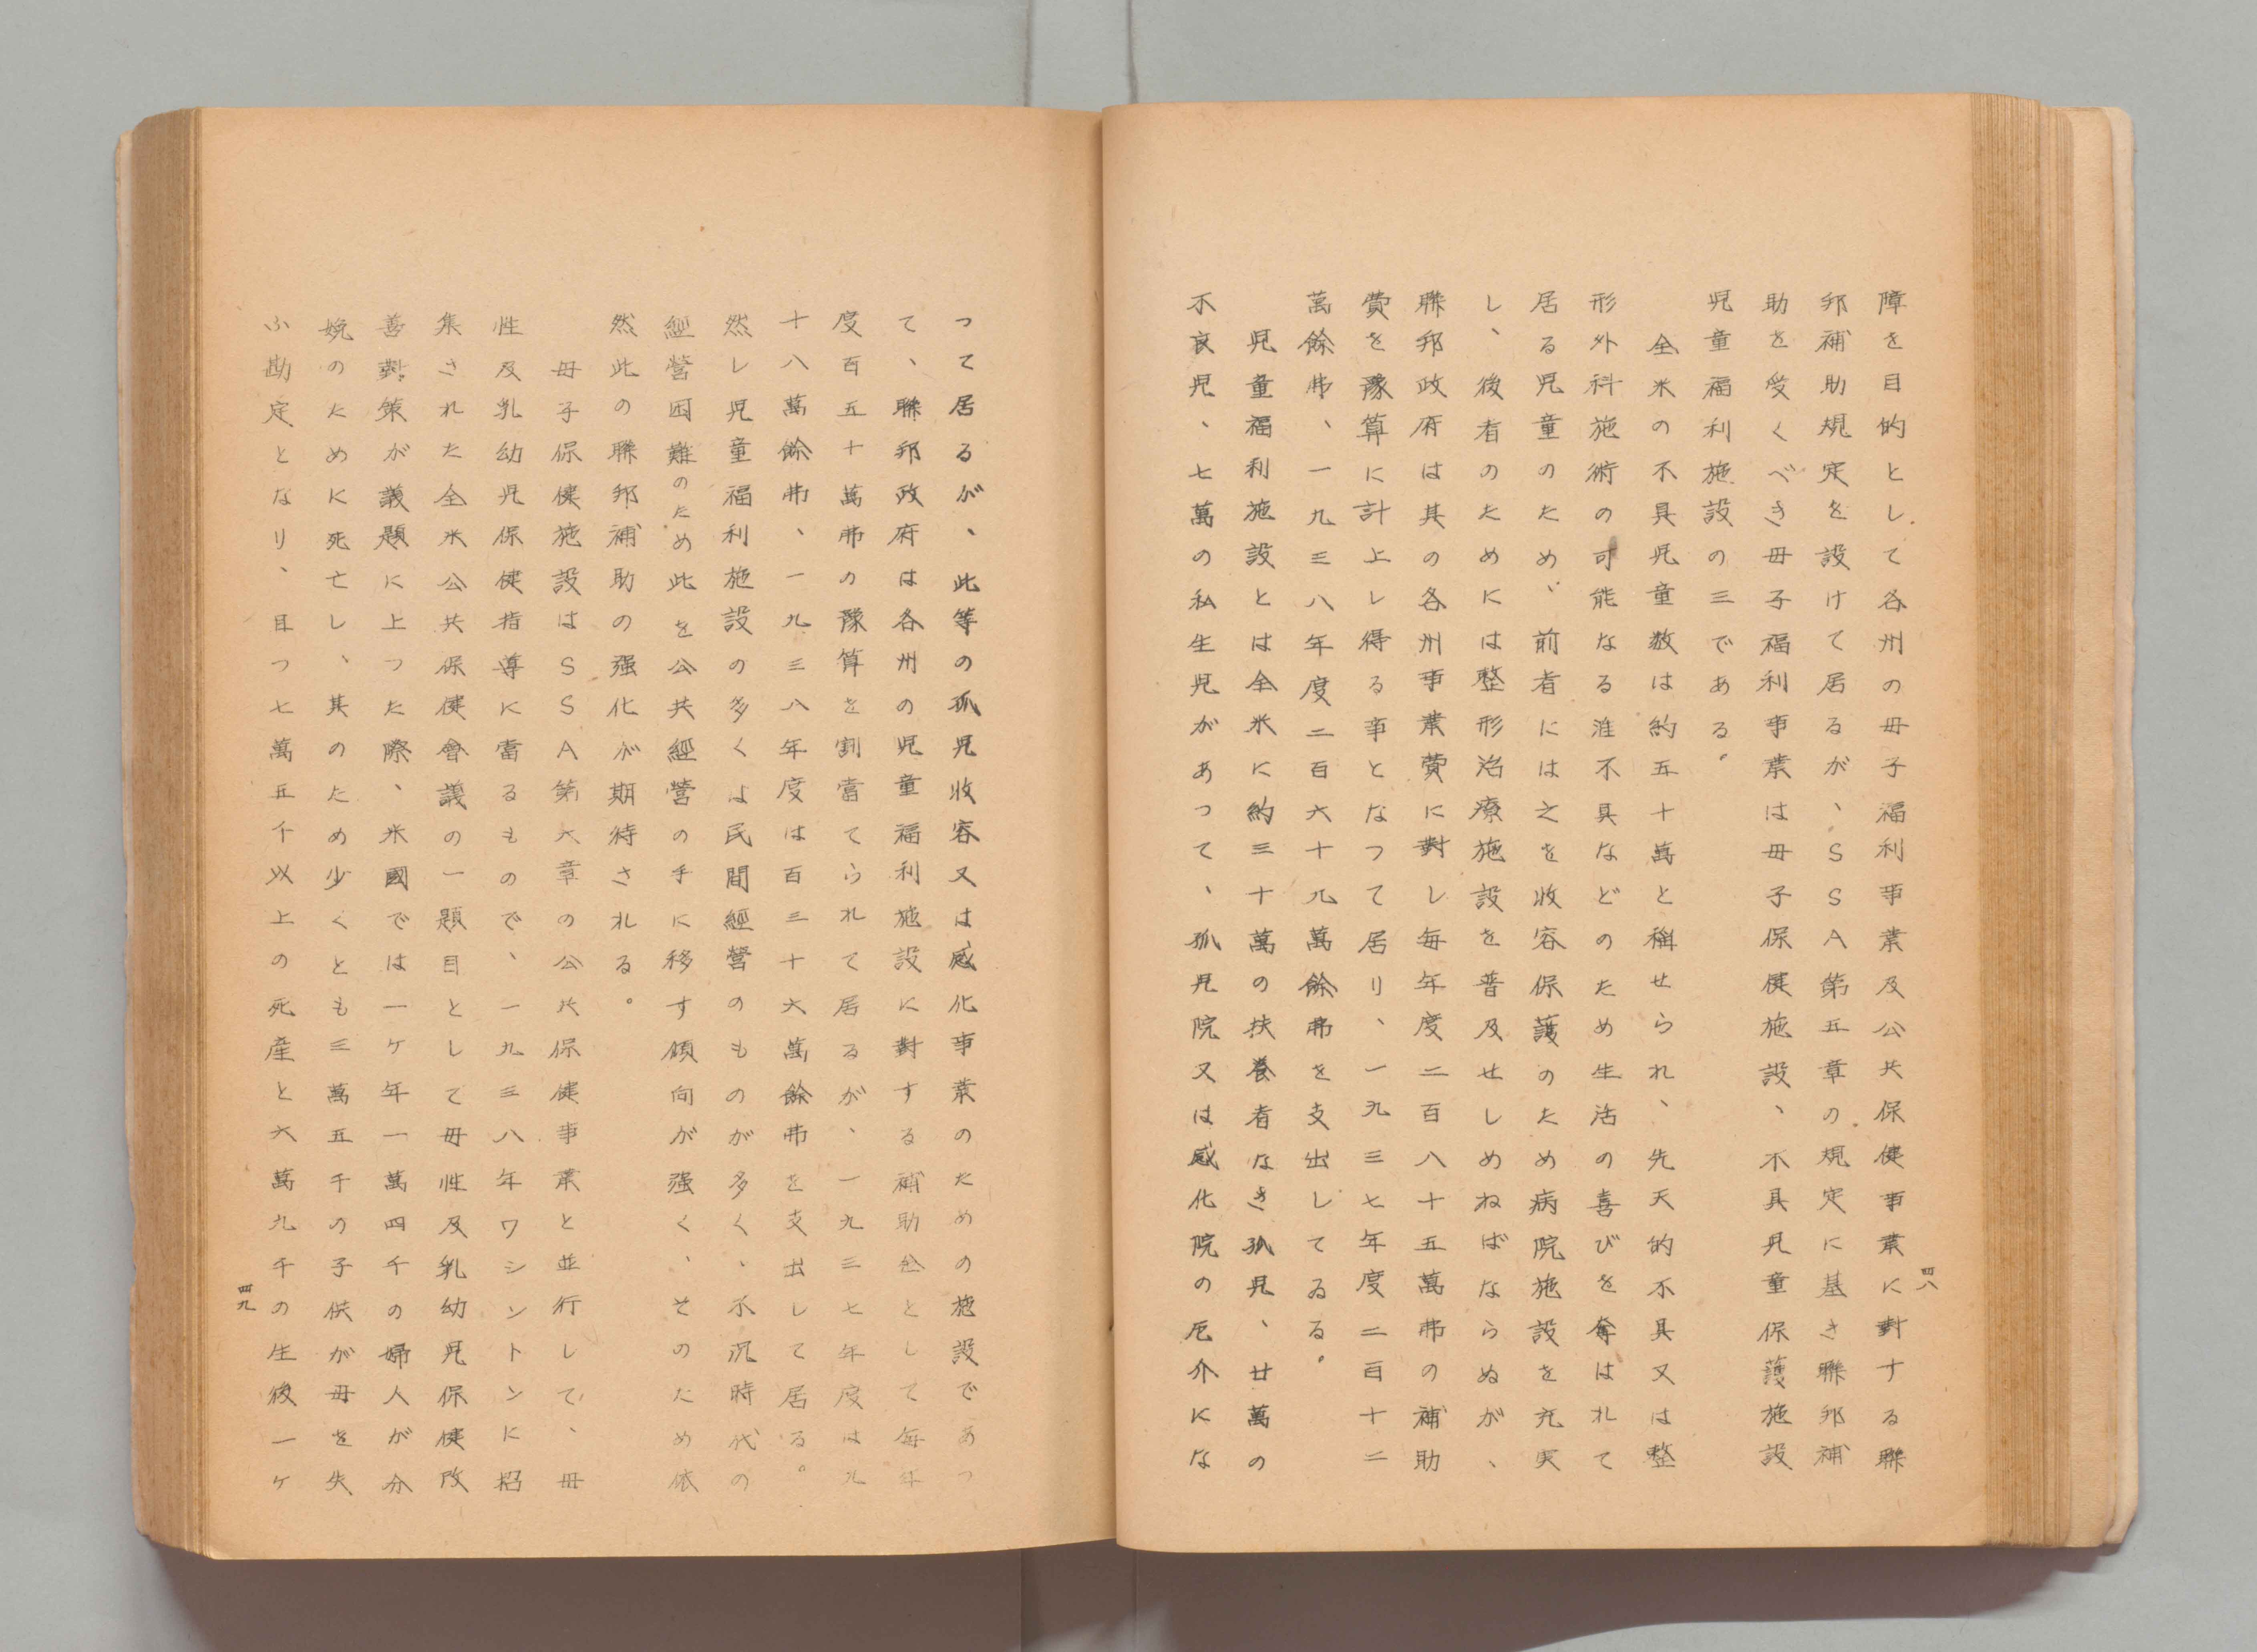 障を目的として各州の母子福利事業及公共保健事業に對する聯
邦補助規定を設けて居るが、SSA第五章の規定に基き聯邦補
助を受くべき母子福利事業は母子保健施設、不具児童保護施設
児童福利施設の三である。
全米の不具児童数は約五十萬と稱せられ、先天的不具又は整
形外科施術の可能なる准不具などのため生活の喜びを奪はれて
居る児童のため、前者には之を收容保護のため病院施設を充実
し、後者のためには整形治療施設を普及せしめねばならぬが、
聯邦政府は其の各州事業費に對し毎年度二百八十五萬弗の補助
費を豫算に計上し得る事となつて居り、一九三七年度二百十二
萬餘弗、一九三八年度二百六十九萬餘弗を支出してゐる。
児童福利施設とは全米に約三十萬の扶養者なき孤児、廿萬の
不良児、七萬の私生児があつて、孤児院又は感化院の厄介にな
四八
つて居るが、此等の孤児收容又は感化事業のための施設であつ
て、聯邦政府は各州の児童福利施設に對する補助金として毎年
度百五十萬弗の豫算を割當てられて居るが、一九三七年度は九
十八萬餘弗、一九三八年度は百三十六萬餘弗を支出して居る。
然し児童福利施設の多くは民間經營のものが多く、不況時代の
經營困難のため此を公共經營の手に移す傾向が强く、そのため依
然此の聯邦補助の强化が期待される。
母子保健施設はSSA第六章の公共保健事業と並行して、母
性及乳幼児保健指導に當るもので、一九三八年ワシントンに招
集された全米公共保健會議の一題目として母性及乳幼児保健改
善對策が議題に上つた際、米國では一ケ年一萬四千の婦人が分
娩のために死亡し、其のため少くとも三萬五千の子供が母を失
ふ勘定となり、且つ七萬五千以上の死産と六萬九千の生後一ケ
四九